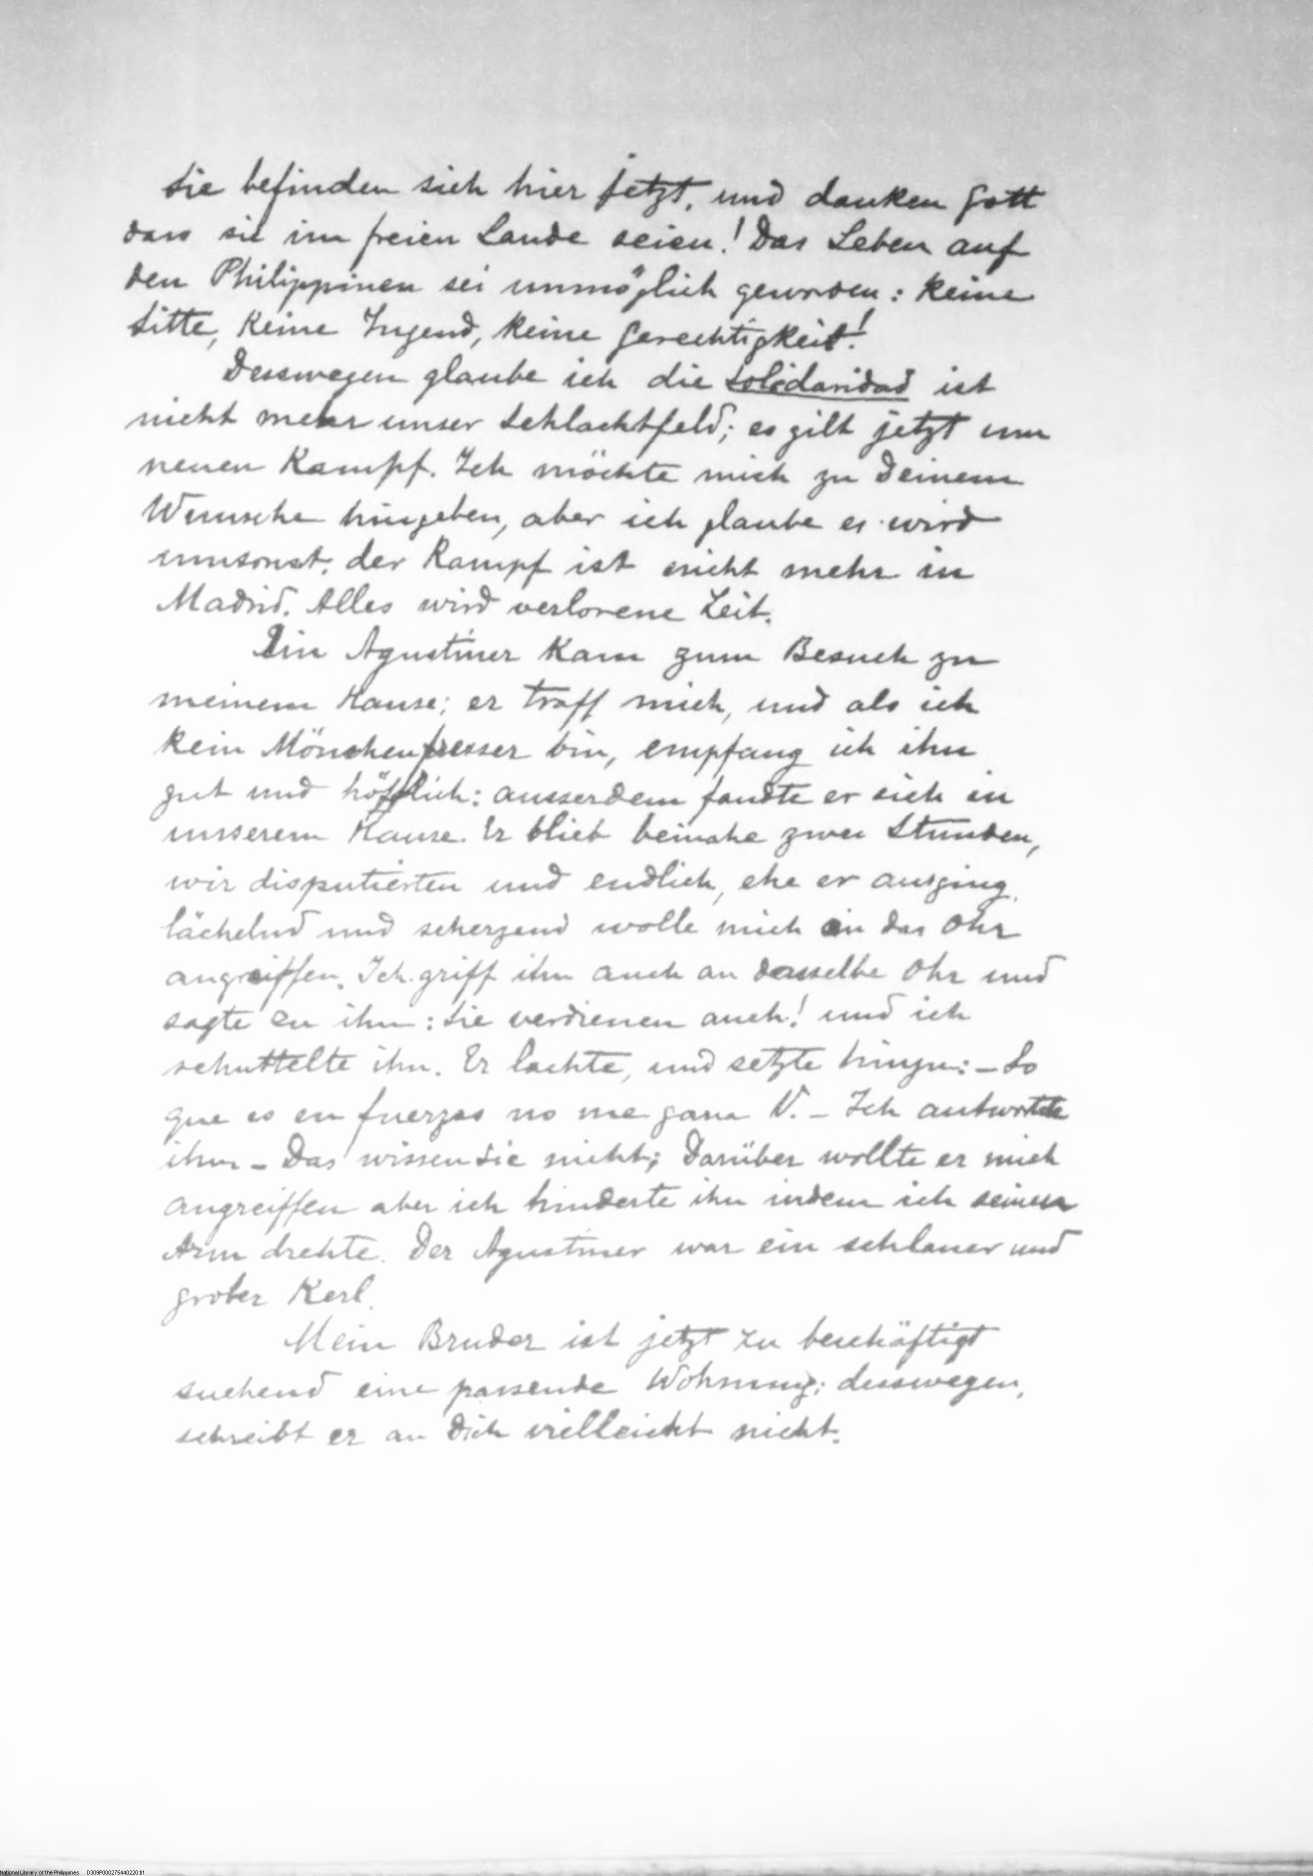 Sie befinden sich hier jetzt, und danken Gott
dass sie im freien Lande seien! Das Leben auf
den Philippinen sei unmöglich geworden: keine
Sitte, keine Tugend, keine Gerechtigkeit!
Desswegen glaube ich die Solidaridad ist
nicht mehr unser Schlachtfeld; es gilt jetzt um
neuen Kampf. Ich möchte mich zu Deinem
Wunsche hingeben, aber ich glaube es wird
umsonst. der Kampf ist nicht mehr in
Madrid. Alles wird verlorene Zeit.
Ein Agustiner kam zum Besuch zu
meinem Hause; er traff mich, und als ich
kein Mönchenfresser bin, empfang ich ihn
gut und höfflich: ausserdem fandte er sich in
unserem Hause. Er blieb beinahe zwei Stunden,
wir disputierten und endlich, ehe er ausging,
lächelnd und scherzend wolle mich an das Ohr
angreiffen. Ich griff ihn auch an dasselbe Ohr und
sagte zu ihn: Sie verdienen auch! und ich
schuttelte ihn. Er lachte, und setzte hinzu: – Lo
que es en fuerzas no me gana V. – Ich antwortete
ihm – Das wissen Sie nicht; Darüber wollte er mich
angreiffen aber ich hinderte ihn indem ich seinen
Arm drehte. Der Agustiner war ein schlauer und
grober Kerl.
Mein Bruder ist jetzt zu beschäftigt
suchend eine passende Wohnung; desswegen,
schreibt er an Dich vielleicht nicht.
National Library of the Philippines